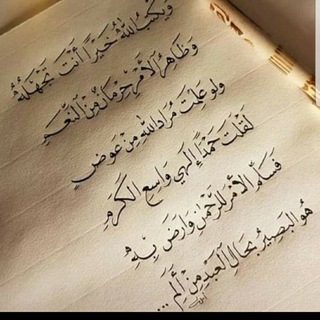 وَيَكْتُبُ اللهُ خَيْرًا أَنْتَ تَجْهَلُهُ
وَظَاهِرُ الْأَمْرِ حِرْمَانٌ مِنَ النِّعَمِ
ولو عَلِمْتَ مُرَادَ اللهِ مِنْ عِوَضٍ
لَقُلْتَ حَمْدًا إِلٰهِي وَاسِعَ الكَرَمِ
فَسَلِّمِ الأَمْرَ لِلرَّحْمٰنِ وَارْضَ بِهِ
هُوَ البَصِيرُ بِحَالِ العَبْدِ مِنْ أَلَمِ ...